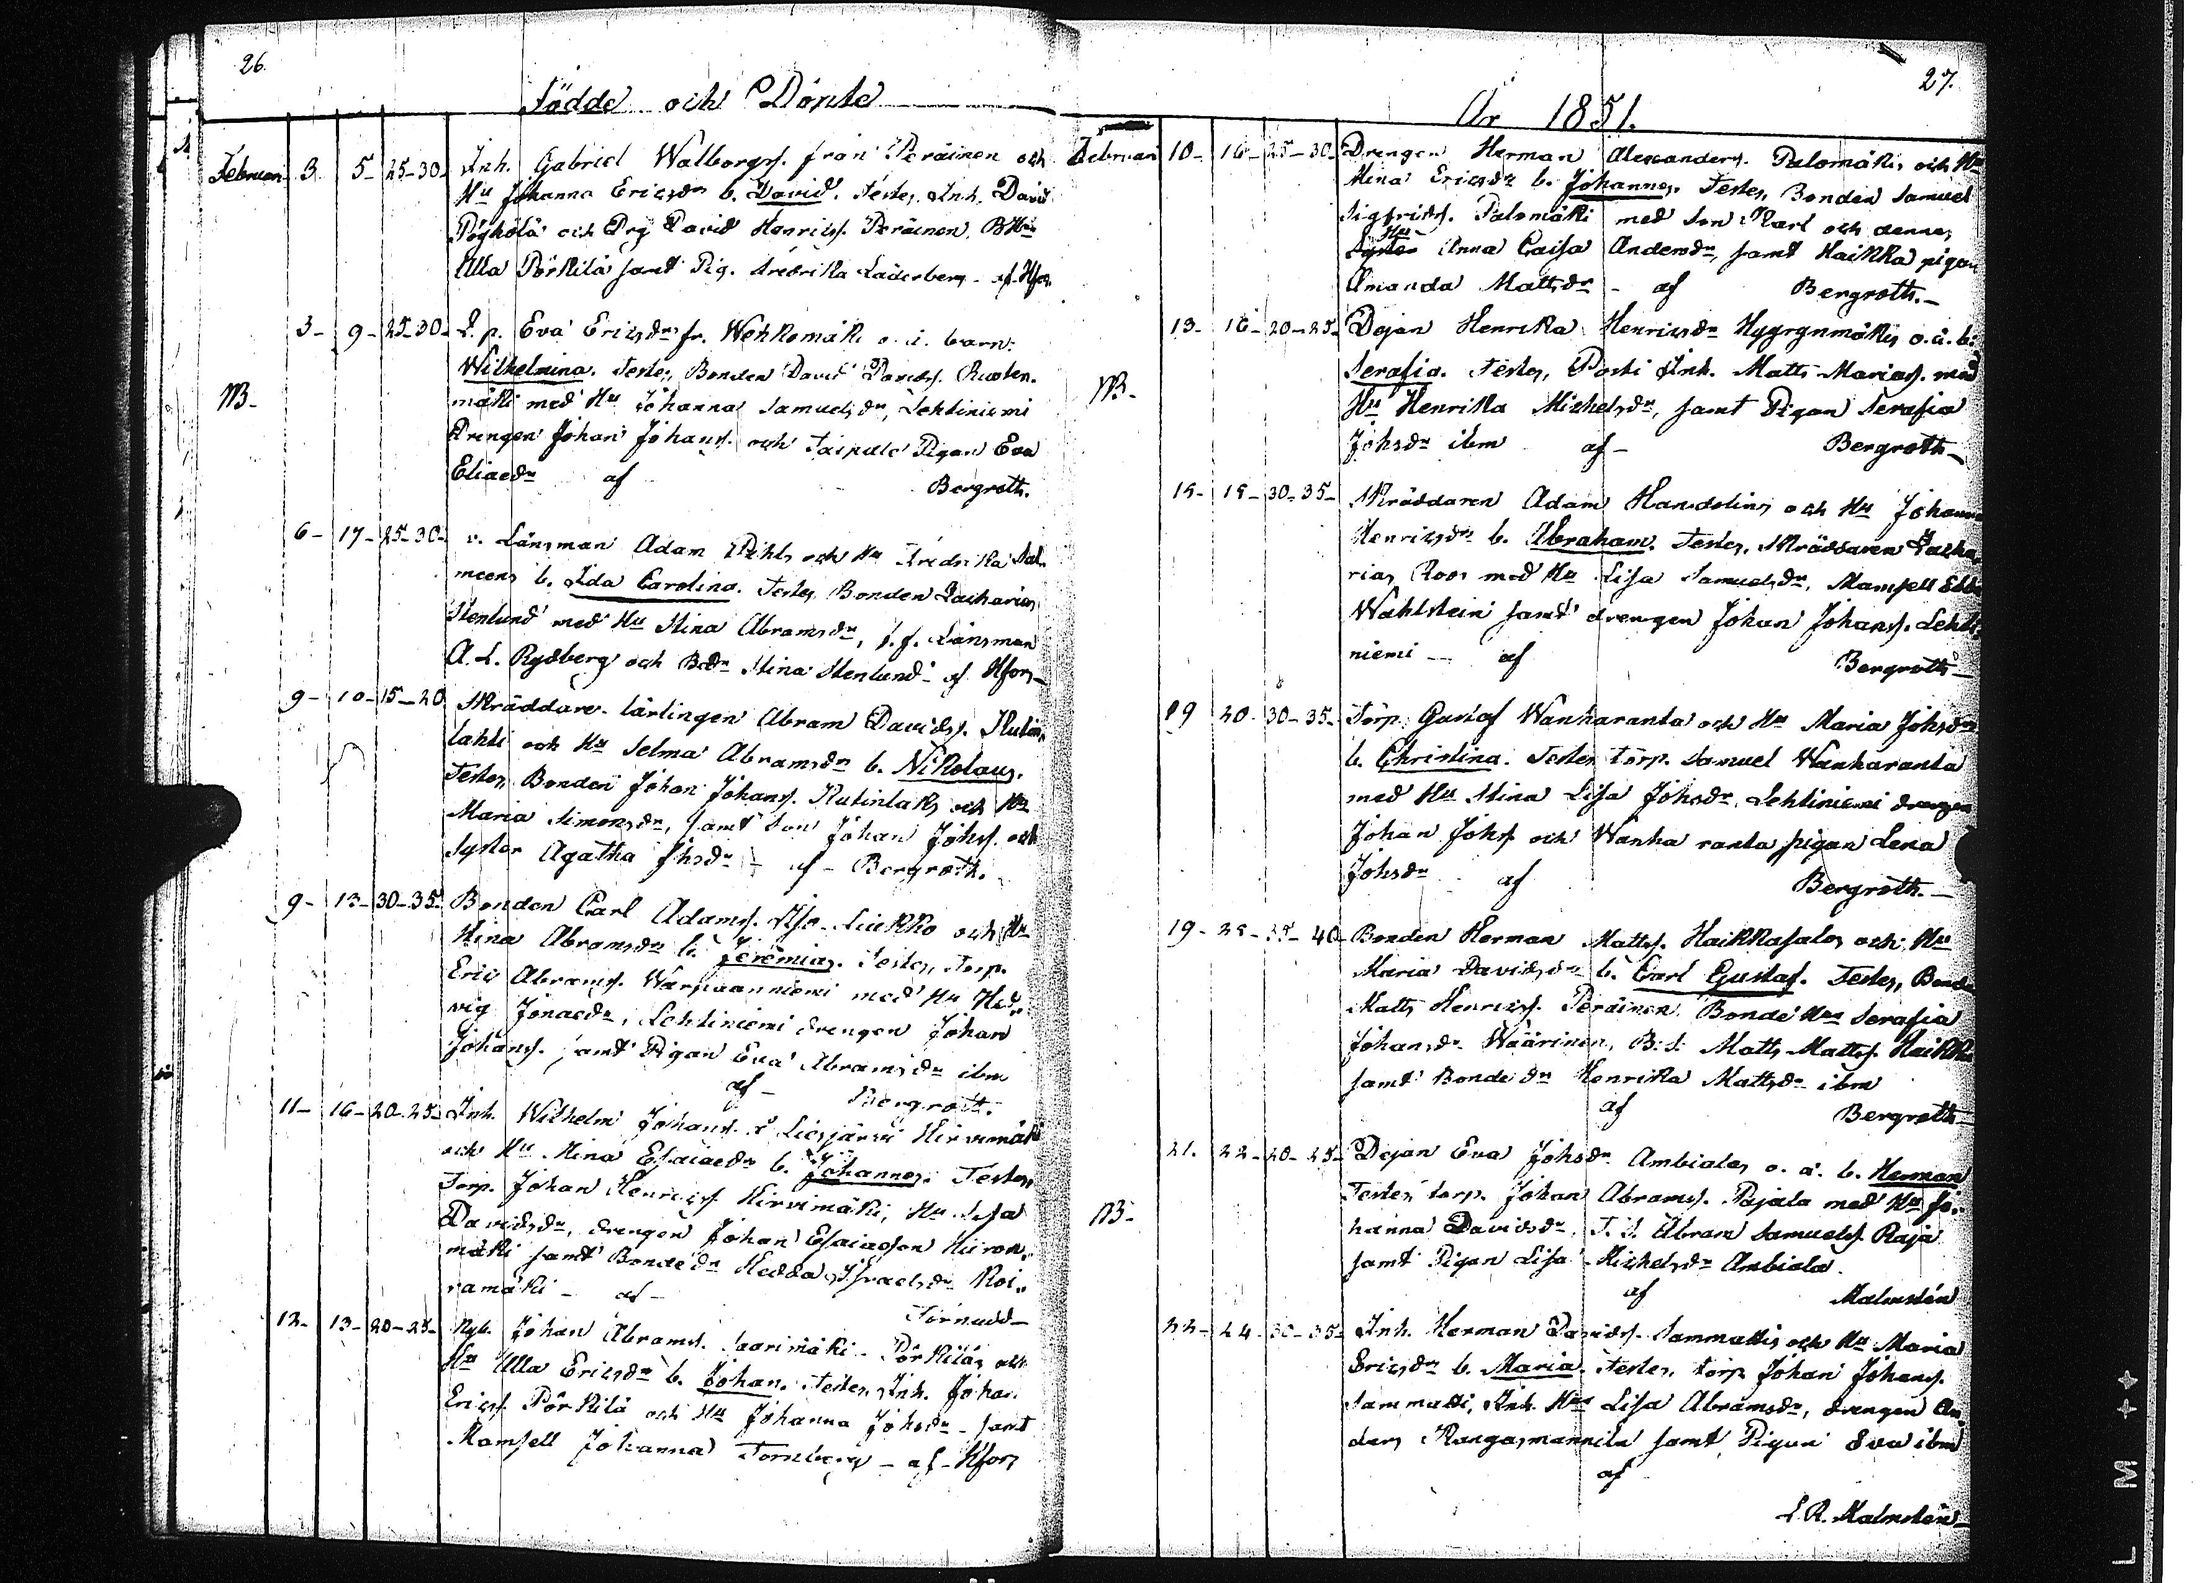 26.
Födde och Döpte
Februari 3. 5- 25-30- Inh. Gabriel Walborgs. från Peräinen och
Hu Johanna Ericsdr b. David. Testes, Inh. David
och Drg David Henricss. Peräinen, BHu
Ulla Pörkilä samt Pig. Fredrika Läderberg - af Hfors.
3- 9- 25-30- L. p. Eva Ericsdr fr. Wehkomäki o. ä. barn:
Wilhelmina. Testes, Bonden David Davids.
NB- mäki med Hu Johanna Samuelsdr, Lehtiniemi
Drengen Johan Johans. och Taipale Pigan Eva
Eliaedr af Bergroth.
6- 17- 25-30- v. Länsman Adam Pihl och Hu Fredrika Sal-
meens b. Ida Carolina. Testes Bonden Zacharias
Stenlund med Hu Stina Abramsdr, f.f. Länsman
A. L. Rydberg och Bdr Stina Stenlund - af Hfors
9- 10- 15-20 Skräddare-lärlingen Abram Davids. Kutin-
lahti och Hu Selma Abramsdr b. Nikolaus.
Testes, Bonden Johan Johans. Kutinlaks och Hu
Maria Simonsdr, samt Son Johan Johss. och
Syster Agatha Jhsdr - af - Bergroth.
9- 13- 30-35- Bonden Carl Adams. Iso-Liukko och Hu
Stina Abramsdr b. Jeremias. Testes, Torp.
Eric Abrams. Warpaanniemi med Hu Hed-
vig Jonaedr, Lehtiniemi drengen Johan
Johans. samt Pigan Eva Abramsdr ibm
af - Bergroth.
11- 16- 20-25- Inh. Wilhelm Johans. Hirvimäki
och Hu Stina Esaiaedr b. Johannes. Testes,
Torp. Johan Henricss. Hirvimäki, Hu Lisa
Davidsdr, drengen Johan Esaiasson
mäki samt Bondedr Hedda Israelsdr Koi-
ramäki - af - Törnudd-
12- 13- 20-25- Johan Abrams. Saarimäki - Pörkilä, och
Hu Ulla Ericsdr b. Johan. Testes, Inh. Johan
Ericss. Pörkilä och Hu Johanna Johsdr - samt
Mamsell Johanna Fornberg - af - Hfors
27.
År 1851.
Februari 10- 16- 25-30- Drengen Herman Alexanders. Palomäki, och Hu
Stina Ericsdr b. Johannes. Testes, Bonden Samuel
Sigfrids. Palomäki med Son Karl och dennes
Hu
Anna Caisa Andersdr, samt Haikka pigan
Amanda Mattsdr - af Bergroth.-
13- 16- 20-25- Dejan Henrika Henricsdr o. ä. b.
Serafia. Testes, Inh. Matts Marias. med
NB- Hu Henrika Michelsdr, samt Pigan Serafia
Johsdr ibm af - Bergroth-
15- 15- 30-35- Skräddaren Adam Handolin, och Hu Johanna
Henricsdr b. Abraham. Testes, Skräddaren Zacha-
rias Roos med Hu Lisa Samuelsdr, Mamsell Ebba
Wahlstein samt drengen Johan Johans. Lehti-
niemi - af Bergroth-
19 20- 30-35- Torp. Gustaf Wanharanta och Hu Maria Johsdr
b. Christina. Testes Torp. Samuel Wanharanta
med Hu Stina Lisa Johsdr, Lehtiniemi drengen
Johan Johs. och Wanha ranta pigan Lena
Johsdr af Bergroth.-
19- 25- 35-40- Bonden Herman Matts. Haikkasalo, och Hu
Maria Davidsdr b. Carl Gustaf. Testes, Bonden
Matts Henricss. Peräinen, Bonde Hu Serafia
Johansdr Wäärinen, B.S. Matts Matts. Haikka
samt Bondedr Henrika Mattsdr ibm
af Bergroth-
21. 22- 20-25- Dejan Eva Johsdr Ambiala, o. ä. b. Herman
Testes torp. Johan Abrams. Pajala med Hu Jo-
NB- hanna Davidsdr, T.S. Abram Samuels. Raja
samt Pigan Lisa Michelsdr Ambiala.
af Malmstén
22- 24- 30-35- Inh. Herman Davids. Sammatti, och Hu Maria
Ericsdr b. Maria. Testes, torp. Johan Johans.
Sammatti, Inh. Hu Lisa Abramsdr, drengen An-
ders Kangasmannila samt Pigan Eva ibm
af
L.R. Malmstén-
L M